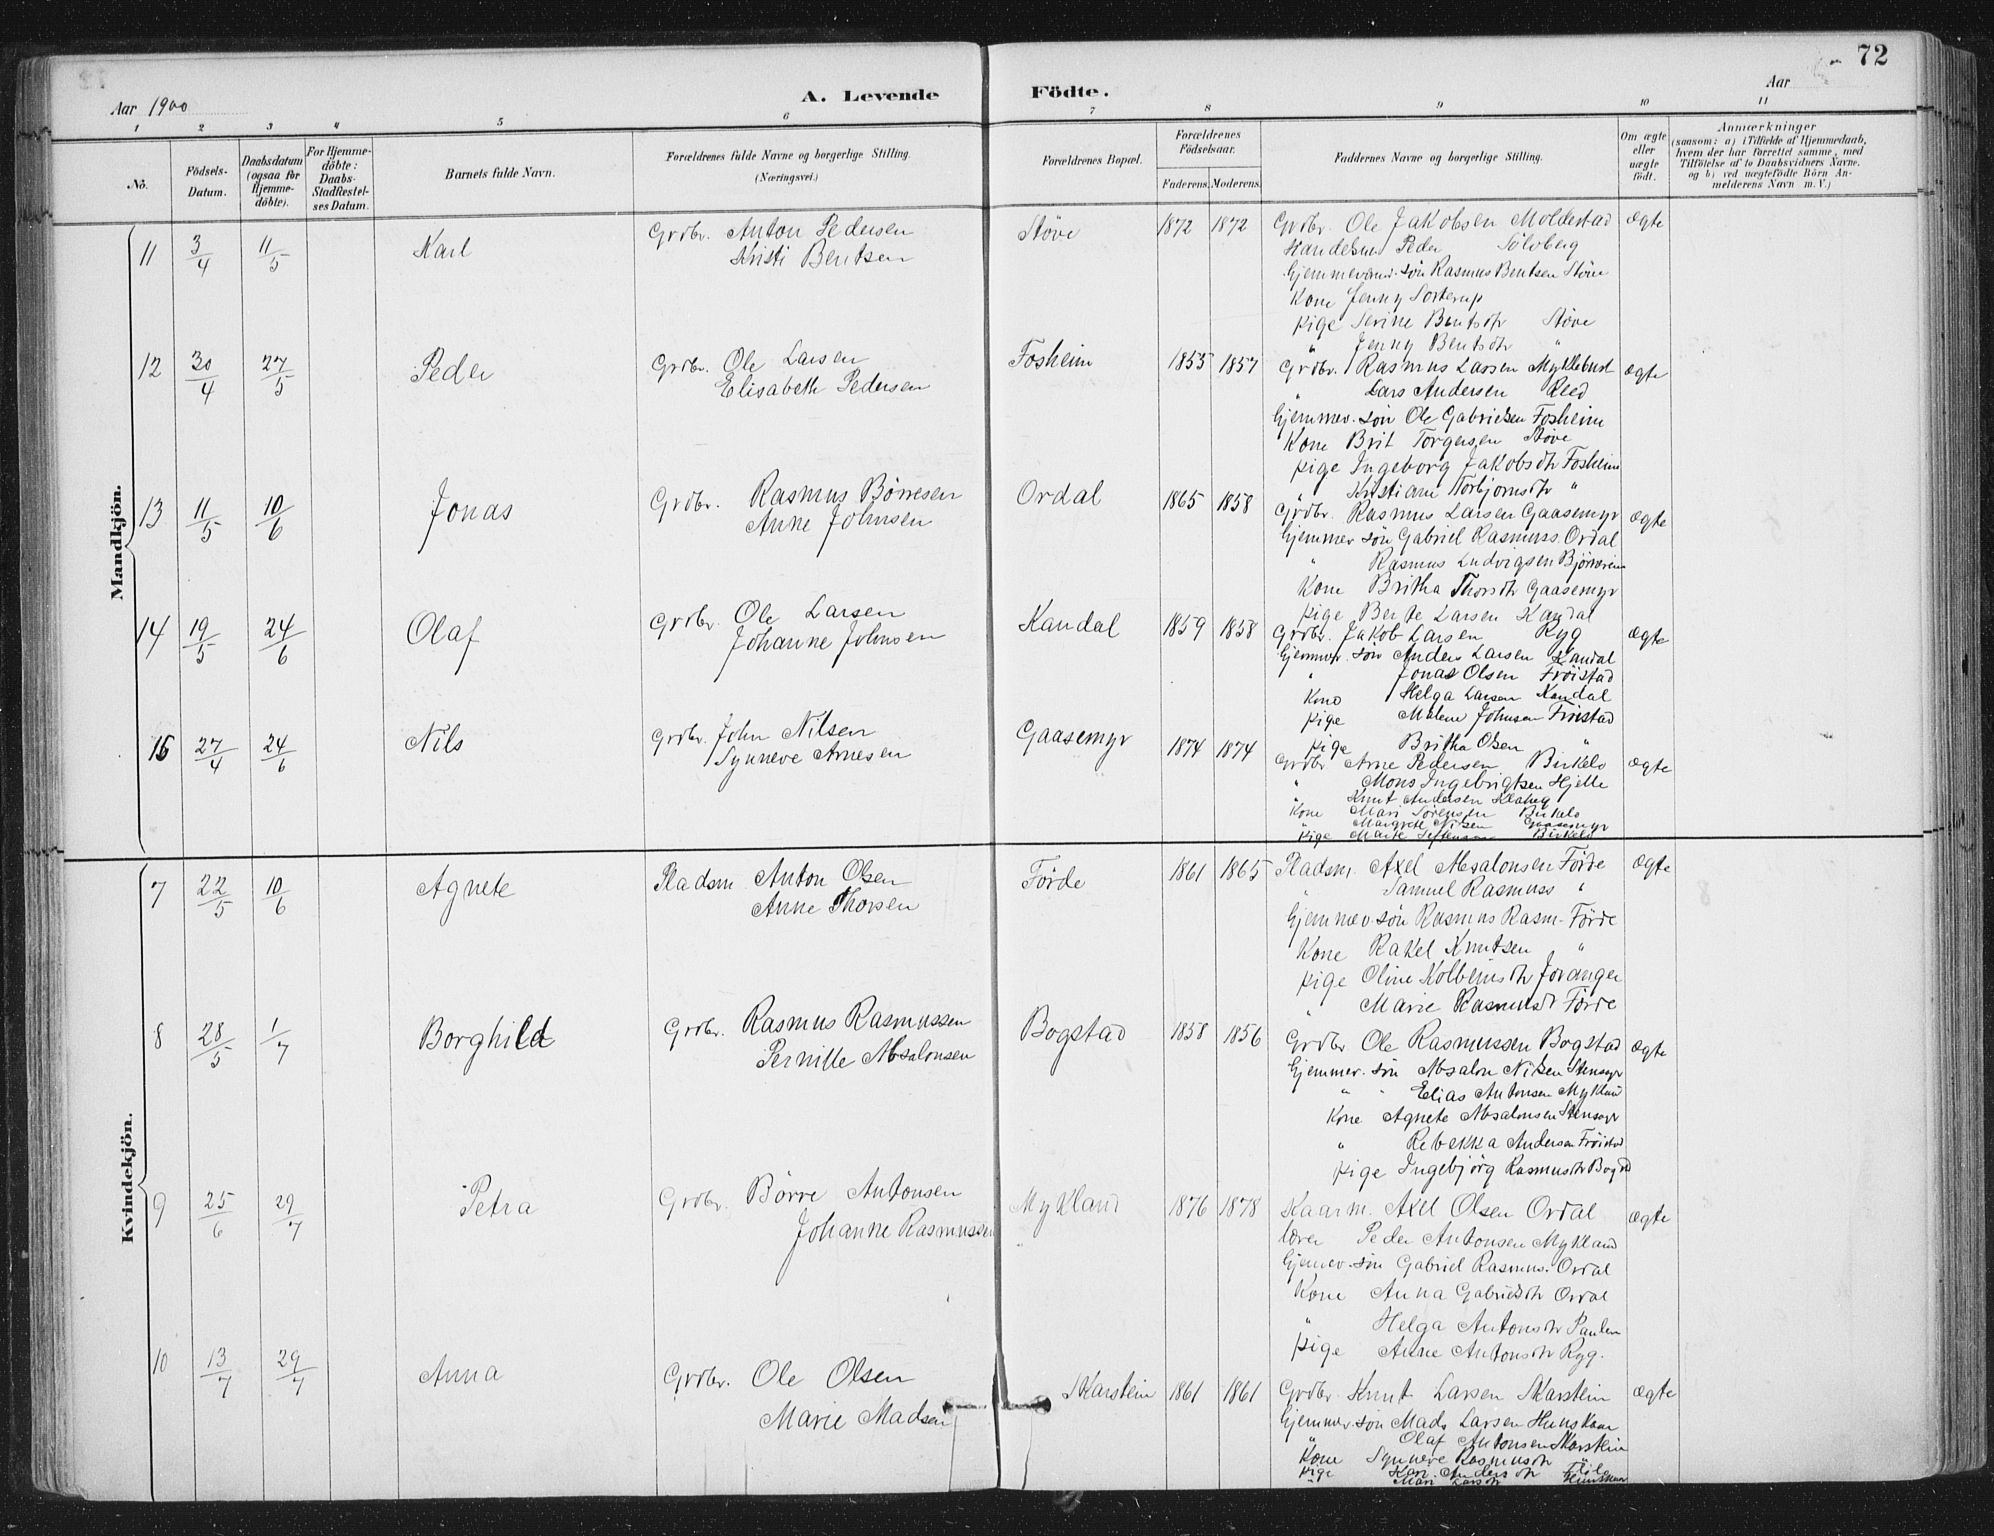 72
Aar 1900
A. Levende Födte.
Aar
1 2 3 4 5 6 7 8 9 10 11
No.
Födsels-Datum.
Daabsdatum (ogsaa for Hjemme-döbte).
For Hjemme-döbte: Daabs-Stadfæstel-ses Datum.
Barnets fulde Navn.
Forældrenes fulde Navne og borgerlige Stilling. (Næringsvei.)
Forældrenes Bopæl.
Forældrenes Födselsaar.
Faderens. Moderens.
Faddernes Navne og borgerlige Stilling.
Om ægte eller uægte födt.
Anmærkninger
(saasom: a) i Tilfælde af Hjemmedaab, hvem der har forrettet samme, med Tilföielse af to Daabsvidners Navne. og b) ved uægtefödte Börn An-melderens Navn m. V.)
Mandkjön.
11 3/4 11/5 Karl Grdbr. Anton Pedersen Støve 1872 1872 Grdbr. Ole Jakobsen Moldestad ægte
Kristi Bentsen Handelsm Peder Sölvberg
Gjemmevær. sön Rasmus Bentsen Støve
Kone Jenny Sorterup
pige Serine Bentsdtr Støve
" Jenny Bentsdtr "
12 30/4 27/5 Peder Grdbr. Ole Larsen Fosheim 1855 1857 Grdbr. Rasmus Larsen Myklebust ægte
Elisabeth Pedersen " Lars Andersen Reed
Gjemmev. sön Ole Gabrielsen Fosheim
Kone Brit Torgersen Støve
pige Ingeborg Jakobsdtr Fosheim
" Kristiane Torbjornsdtr "
13 11/5 10/6 Jonas Grdbr. Rasmus Börresen Ordal 1865 1858 Grdbr. Rasmus Larsen Gaasemyr ægte
Anne Johnsen Gjemmev sön Gabriel Rasmuss. Ordal
" Rasmus Ludvigsen
Kone Britha Thorsdtr Gaasemyr
pige Berte Larsen Kandal
14 19/5 24/6 Olaf Grdbr. Ole Larsen Kandal 1859 1858 Grdbr. Jakob Larsen Ryg ægte
Johanne Johnsen Gjemmev. sön Anders Larsen Kandal
" Jonas Olsen Fröistad
Kone Helga Larsen Kandal
pige Malene Johnsen Fröistad
pige Britha Olsen "
15 27/4 24/6 Nils Grdbr. John Nilsen Gaasemyr 1874 1874 Grdbr Arne Pedersen Birkelo ægte
Synneve Arnesen " Mons Ingebrigtsen Hjelle
" Knut Andersen
Kone Mari Sörensen Birkelo
" Margrete Nilsen Gaasemyr
pige Marie Birkelo
Kvindekjön.
7 22/5 10/6 Agnete Pladsm Anton Olsen Förde 1861 1865 Pladsm. Axel Absalonsen Förde ægte
Anne Thorsen " Samuel Rasmuss "
Gjemmev sön Rasmus Rasm. Förde
Kone Rakel Knutsen "
pige Oline Kolbeinsdtr Joranger
" Marie Rasmusdtr Förde
8 28/5 1/7 Borghild Grdbr. Rasmus Rasmussen Bogstad 1858 1856 Grdbr Ole Rasmussen Bogstad ægte
Pernille Absalonsen Gjemmev. sön Absalon Nilsen Stensyr
" " Elias Antonsen Mykland
Kone Agnete Absalonsen Stensyr
" Rebekka Andersen Fröistad
pige Ingebjörg Rasmusdtr Bogstd
9 25/6 29/7 Petra Grdbr. Börre Antonsen Mykland 1876 1878 Kaarm. Axel Olsen Ordal ægte
Johanne Rasmussen lærer Peder Antonsen Mykland
Gjemev. sön Gabriel Rasmus. Ordal
Kone Anna Gabrielsdtr Ordal
" Helga Antonsdtr Paulen
pige Anne Antonsdtr Ryg.
10 13/7 29/7 Anna Grdbr. Ole Olsen Skarstein 1861 1861 Grdbr Knut Larsen Skarstein ægte
Marie Madsen Gjemmev sön Mads Larsen Hunskaar
" Olaf Antonsen Skarstein
Kone Synneve Rasmusdtr
pige Kari Andersdtr
" Mari Larsdtr Hunskaar